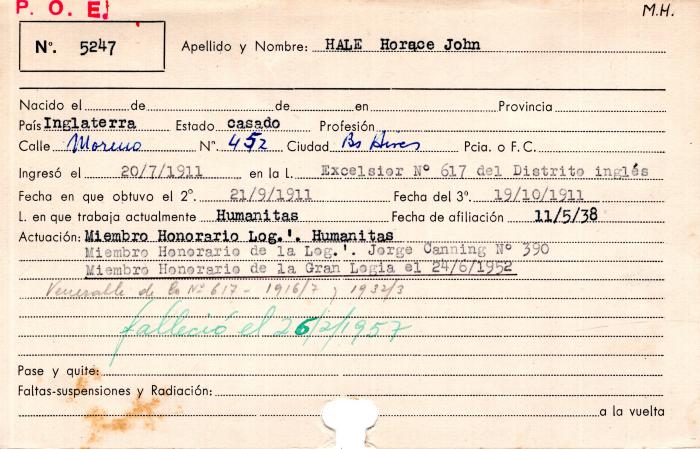 P. O. E.
M.H.
N°. 5247
Apellido y Nombre: HALE Horace John
Nacido el de de en Provincia
País Inglaterra Estado casado Profesión
Calle Moreno N°. 452 Ciudad Bs Aires Pcia. o F.C.
Ingresó el 20/7/1911 en la L. Excelsior N° 617 del Distrito inglés
Fecha en que obtuvo el 2°. 21/9/1911 Fecha del 3°. 19/10/1911
L. en que trabaja actualmente Humanitas Fecha de afiliación 11/5/38
Actuación: Miembro Honorario Log.'. Humanitas
Miembro Honorario de la Log.'. Jorge Canning N° 390
Miembro Honorario de la Gran Logia el 24/6/1952
Venerable de la N° 617 - 1916/7 y 1932/3
falleció el 26/2/1957
Pase y quite:
Faltas-suspensiones y Radiación:
a la vuelta